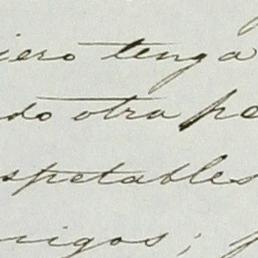 iero tenga
do otra pe
spetables
migos; p